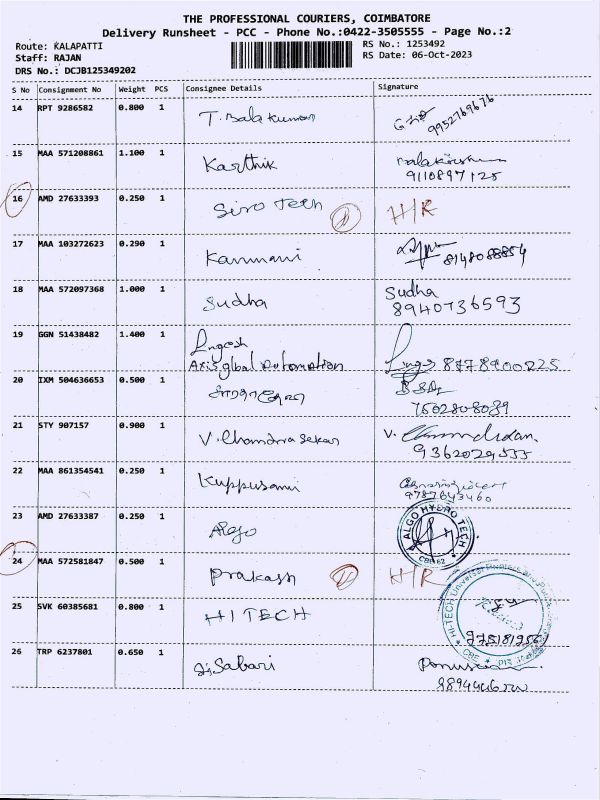 THE PROFESSIONAL COURIERS, COIMBATORE
Delivery Runsheet - PCC - Phone No.:0422-3505555 - Page No.:2
Route: KALAPATTI
Staff: RAJAN
DRS No.: DCJB125349202
RS No.: 1253492
RS Date: 06-Oct-2023
S No Consignment No Weight PCS Consignee Details Signature
14 RPT 9286582 0.800 1 T. Balakumar 9952769676
15 MAA 571208861 1.100 1 Karthik Balakrishnan
9110897125
16 AMD 27633393 0.250 1 Siro Tech H/R
17 MAA 103272623 0.290 1 Kanmani 8148088854
18 MAA 572097368 1.000 1 Sudha Sudha
8940736593
19 GGN 51438482 1.400 1 Lingesh
Axis global Automation 8778900225
20 IXM 504636653 0.500 1
7502808089
21 STY 907157 0.900 1 V. Chandrasekar V.
9362029555
22 MAA 861354541 0.250 1 Kuppusami
9787643460
23 AMD 27633387 0.250 1 Algo ALGO HYDRO TECH
CBE 62
24 MAA 572581847 0.500 1 Prakash H/R
25 SVK 60385681 0.800 1 HITECH HI-TECH Universal
CBE
26 TRP 6237801 0.650 1 Sabari